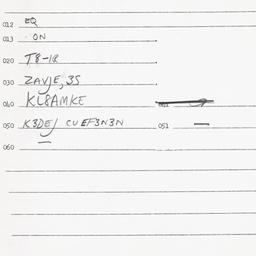 012 EQ
013 ON
020 T8-12
030 ZAVJE, 3S
040 KL8AMKE
050 K3DEJ CUEF3N3N 051 —
060 —